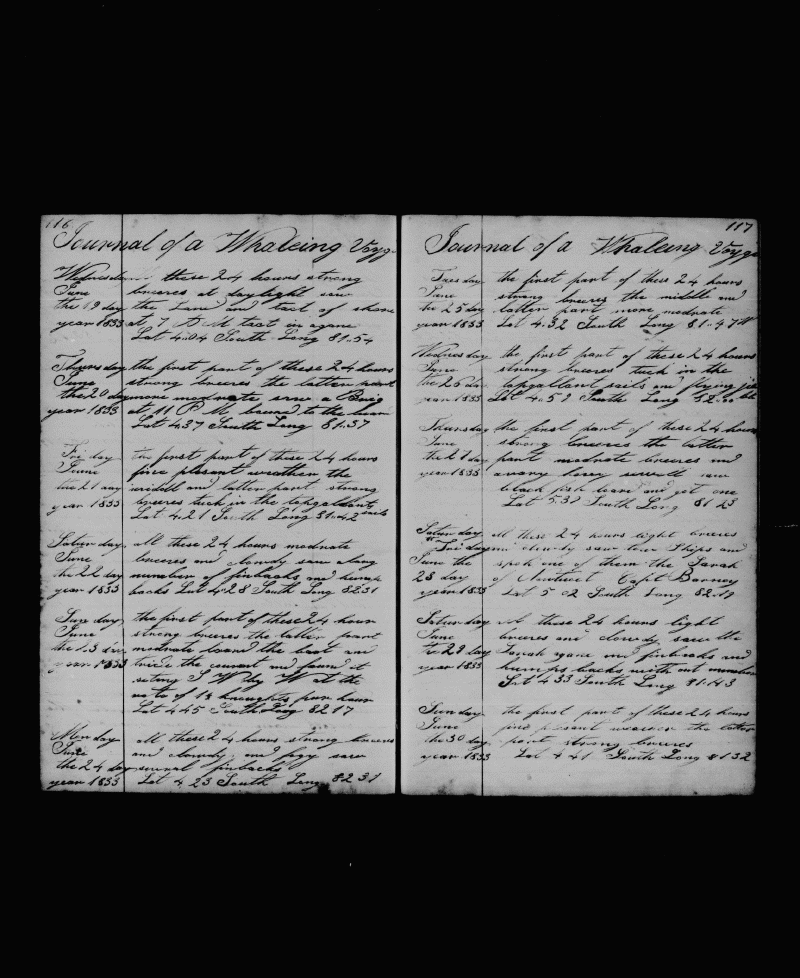 116
Journal of a Whaleing Voyg
Wednesday these 24 hours strong
June breeses at daylight saw
the 19 day the Land and tact of shore
year 1833 at 7 P M tact in agane
Lat 4.04 South Long 81.54
Thursday the first part of these 24 hours
June strong breeses the latter part
the 20 day more moderate saw a Brig
year 1833 at 11 P M
Lat 4.37 South Long 81.37
Friday the first part of these 24 hours
June fine plesent weather the
the 21 day middl and latter part strong
year 1833 breeses tuck in the topgallant sails
Lat 4.21 South Long 81.42
Saturday all these 24 hours modrate
June breeses and clowdy saw along
the 22 day number of finbacks and hump
year 1833 backs Lat 4.28 South Long 82 31
Sunday the first part of these 24 hour
June strong breeses the latter paart
the 23 modrate loared the boat and
year 1833 tride the current and found it
seting S W by W at the
rate of knoughts pur hour
Lat 4 45 South Long 82 17
Monday All these 24 hours strong breeses
June and clowdy and fogy saw
the 24 day finbacks
year 1833 Lat 4 23 South Long 82 31
117
Journal of a Whaleing Voyge
Tuesday the first part of these 24 hours
June strong breeses the middle and
the 25 day latter part more modrate
year 1833 Lat 4.32 South Long 81.47 W
Wednesday the first part of these 24 hours
June strong breeses tuck in the
the 26 day topgallant sails and flying jib
year 1833 Lat 4.59 South Long
Thursday the first part of these 24 hours
June strong breeses the latter
the 27 day part modrate breeses and
year 1833 a vary havy swell saw
black fish loard and got one
Lat 5.32 South Long 81 23
Saturday All these 24 hours light breeses
or Friday and clowdy saw Ships and
June the spok one of them the Sarah
28 day of Capt Barney
year 1833 Lat 5 02 South Long 82.19
Saturday All these 24 hours light
June breeses and clowdy saw the
the 29 day Sarah agane and finbacks and
year 1833 humps backs with out number
Lat 4 33 South Long 81.43
Sunday the first part of these 24 hours
June fine plesant weather the latter
the 30 day part strong breeses
year 1833 Lat 4 41 South Long 81 32